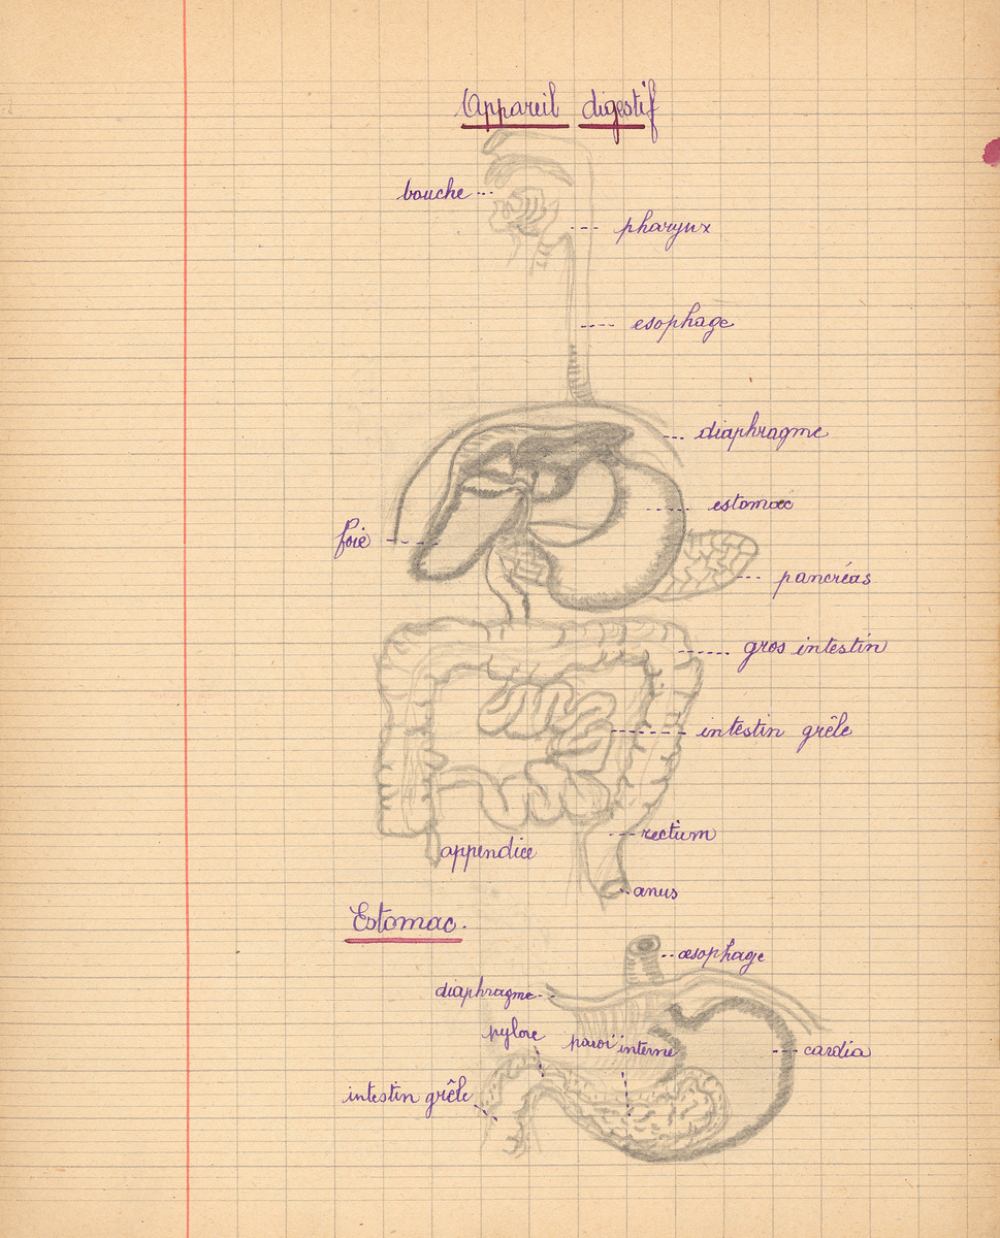 Appareil digestif
bouche
pharynx
esophage
diaphragme
estomac
foie
pancréas
gros intestin
intestin grêle
rectum
appendice
anus
Estomac.
œsophage
diaphragme
pylore
paroi interne
cardia
intestin grêle